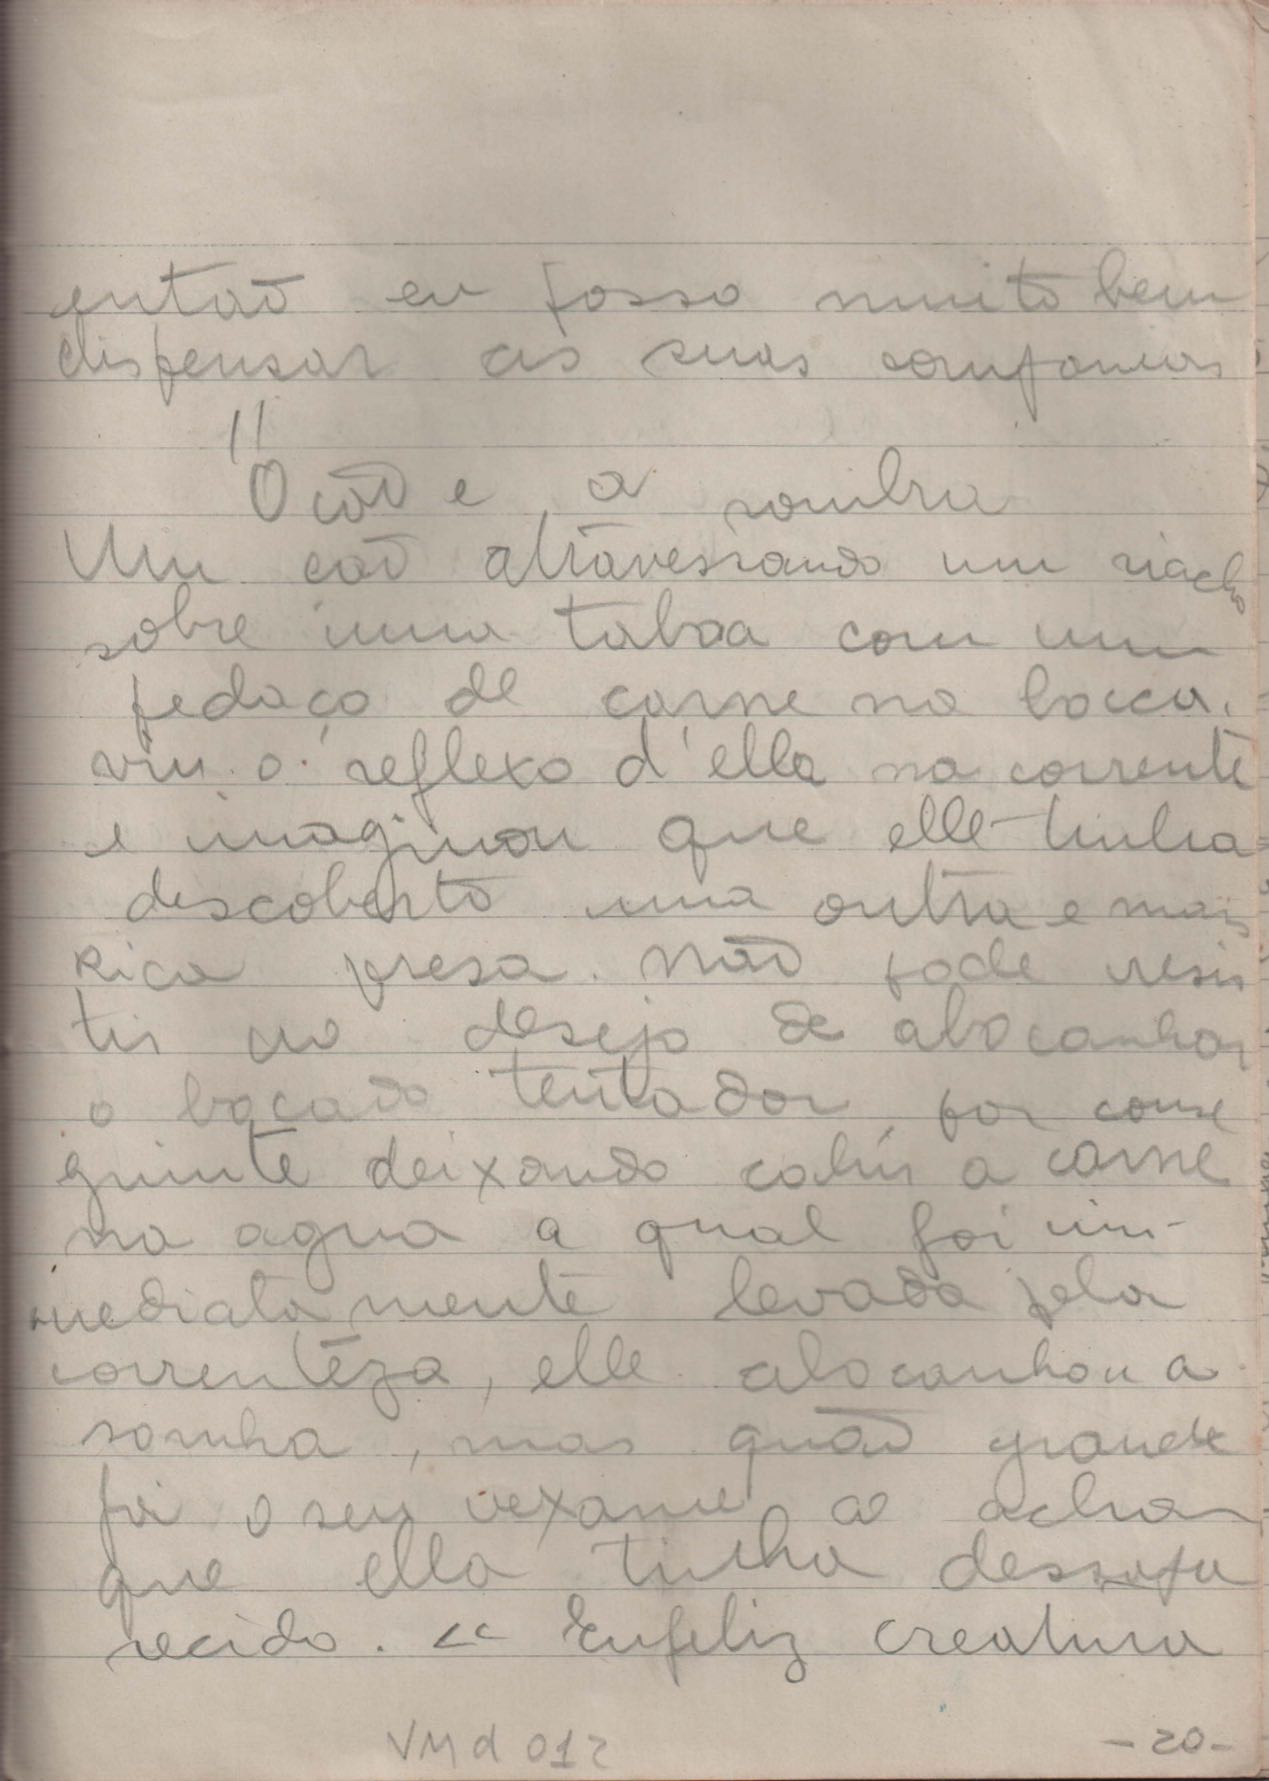 então eu posso muito bem
dispensar as suas
11
O cão e a sombra
Um cão atravessando um riacho
sobre uma taboa com um
pedaço de carne na bocca,
viu o reflexo d'ella na corrente
e imaginou que elle tinha
descoberto uma outra e mais
Rica presa. Não pode resis
tir ao desejo de abocanhar
o bocado tentador, por conse
guinte deixando cahir a carne
na agua a qual foi im-
mediatamente levada pela
correntêza, elle abocanhou a
somha, mas quão grande
foi o seu vexame ao achar
que ella tinha desapa
recido. << Enfeliz creatura
VMd 012
-20-